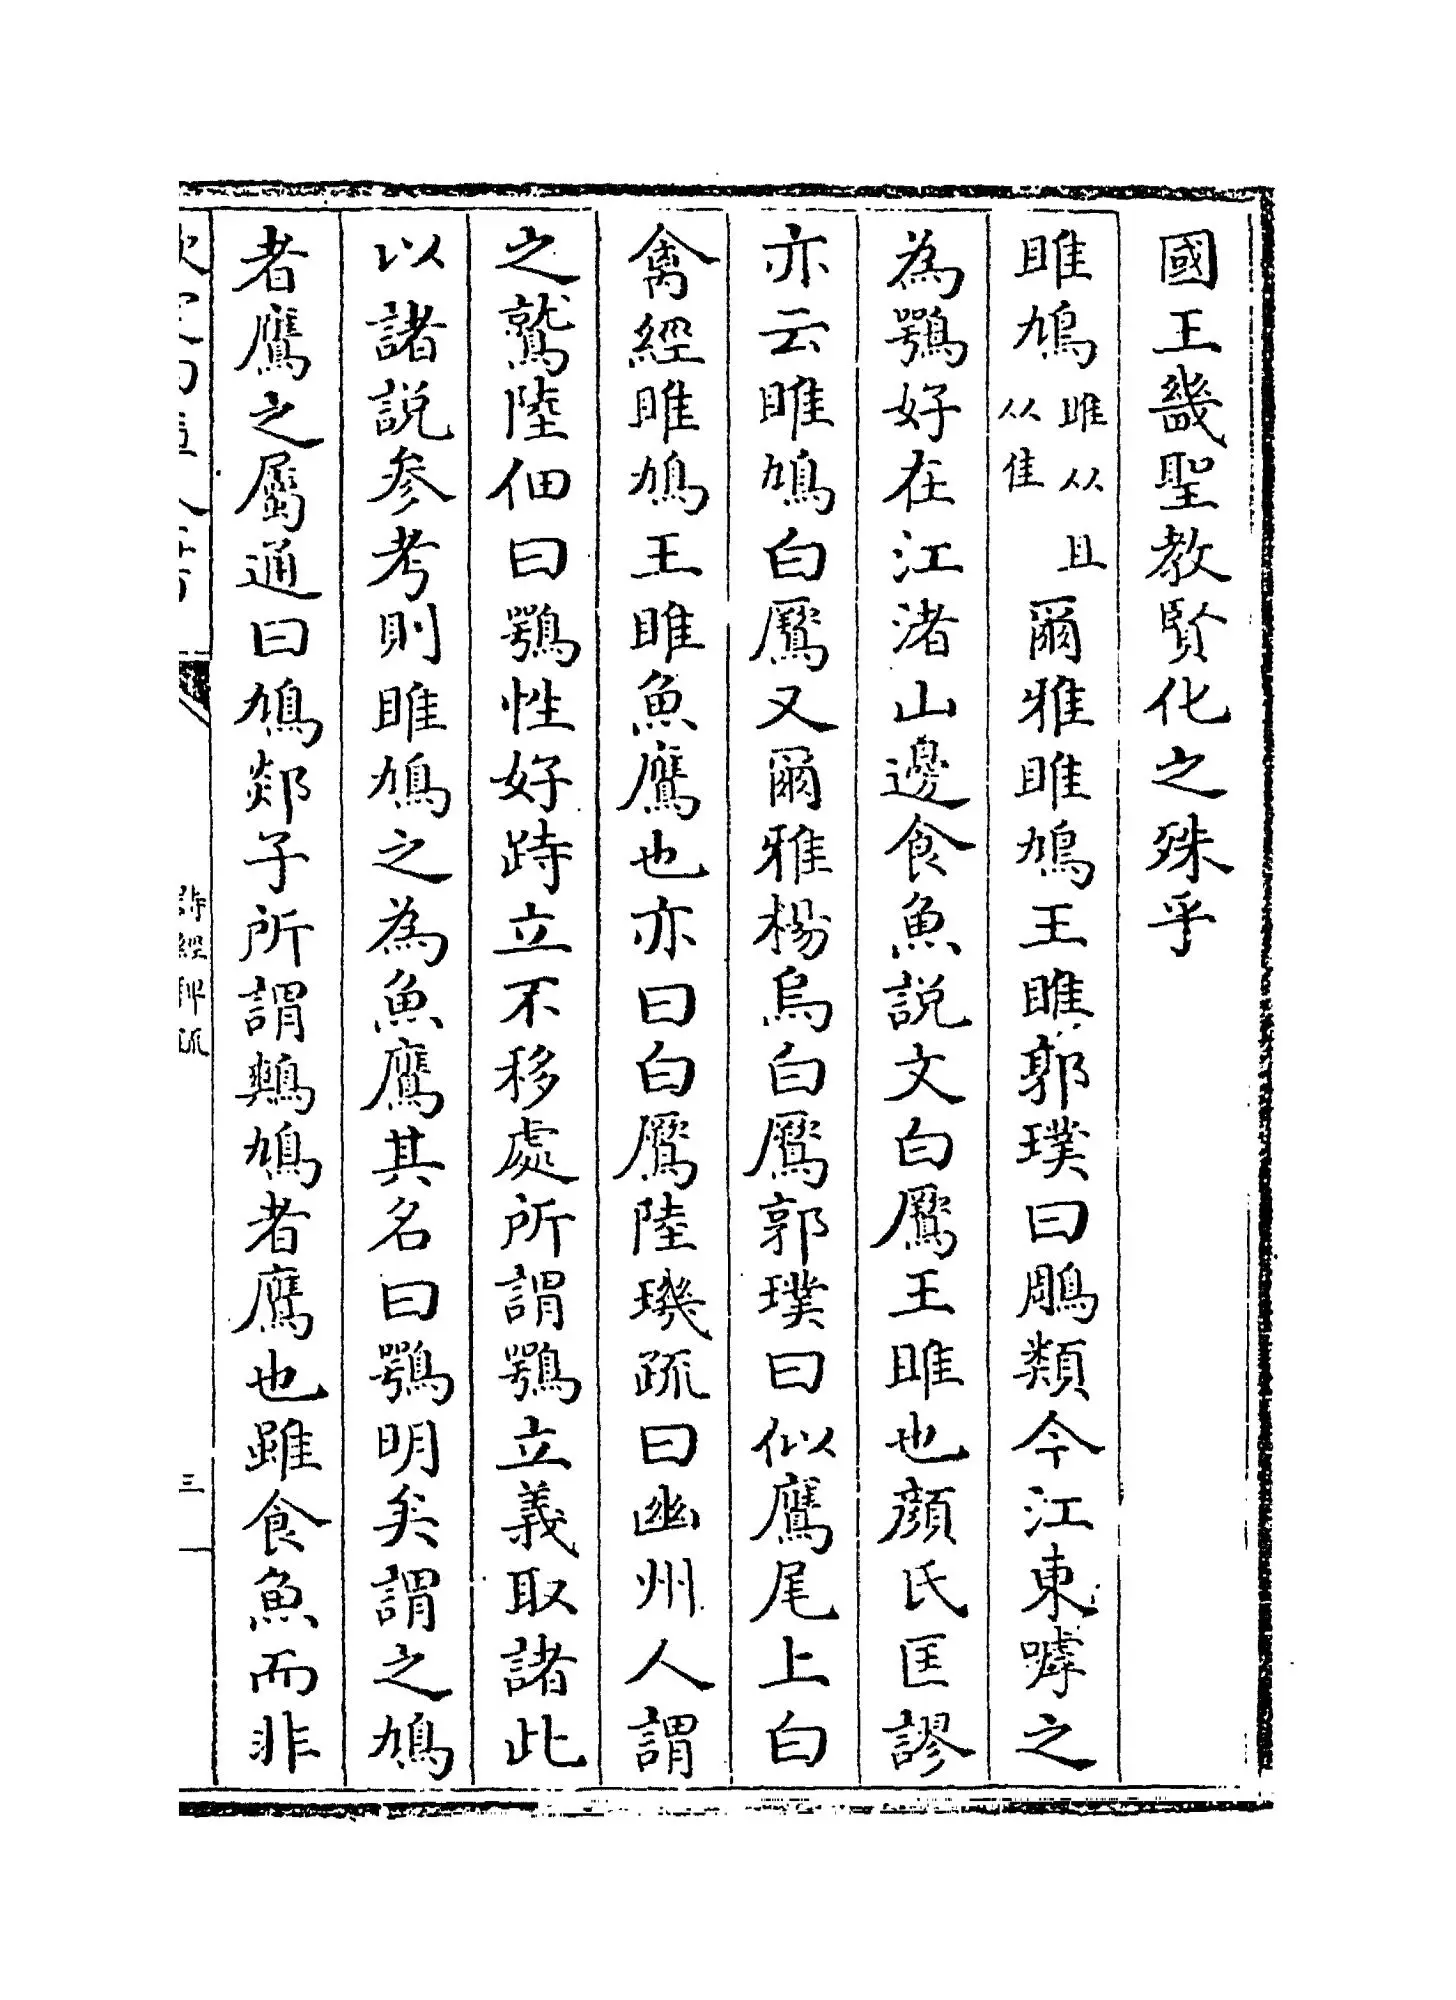 國王畿聖教賢化之殊乎
雎鳩雎从且从隹爾雅雎鳩王雎郭璞曰鵰類今江東嘑之
為鶚好在江渚山邊食魚說文白鷢王雎也顔氏匡謬
亦云雎鳩白鷢又爾雅楊鳥白鷢郭璞曰似鷹尾上白
禽經雎鳩王雎魚鷹也亦曰白鷢陸璣疏曰幽州人謂
之鷲陸佃曰鶚性好跱立不移處所謂鶚立義取諸此
以諸說參考則雎鳩之為魚鷹其名曰鶚明矣謂之鳩
者鷹之屬通曰鳩郯子所謂鷞鳩者鷹也雖食魚而非
詩經稗疏
三